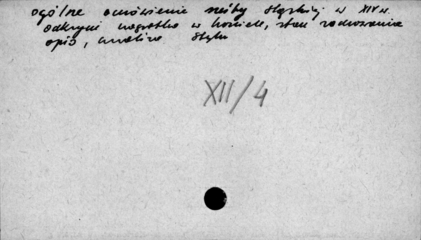 ogólne omówienie rzeźby śląskiej w XIV w.
odkrycie nagrobka w kościele, stan zachowania
opis, analiza stylu
XII/4